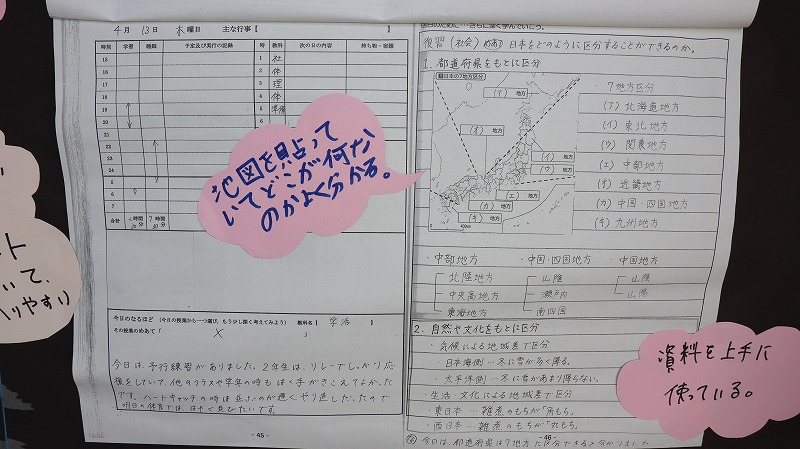 4月 13日 木曜日 主な行事【
時刻 学習 睡眠 予定及び実行の記録 時 教科 次の日の内容 持ち物・宿題
15 1 社
16 2 体
17 3 理
18 4 体
19 5 準備
20 6
21
22
23
24
5
6
7
合計 時間 分 7時間 30分
今日のなるほど (今日の授業から一つ選び、もう少し深く考えてみよう) 教科名【 学活 】
その授業のめあて「 × 」
今日は、予行練習がありました。2年生は、リレーでしっかり応
援をしていて、他のクラスや学年の時もはく手がきこえてよかった
です。ハートキャッチの時は並ぶのが遅くやり直しだったので
明日の体育では、はやく並びたいです。
-45-
地図を貼って
いてどこが何な
のかよく分かる。
明日のために…さらに深く学んでいこう。
復習 (社会) めあて 日本をどのように区分することができるのか。
1. 都道府県をもとに区分
日本の7地方区分
(ア) 地方
(オ) 地方
(イ) 地方
(ウ) 地方
(エ) 地方
(カ) 地方
(キ) 地方
0 400km
・7地方区分
(ア) 北海道地方
(イ) 東北地方
(ウ) 関東地方
(エ) 中部地方
(オ) 近畿地方
(カ) 中国・四国地方
(キ) 九州地方
・中部地方 ・中国・四国地方 ・中国地方
北陸地方 山陰 山陰
中央高地地方 瀬戸内 山陽
東海地方 南四国
2. 自然や文化をもとに区分
・気候による地域差で区分
・日本海側…冬に雪が多く降る。
・太平洋側…冬に雪があまり降らない。
・生活・文化による地域差で区分
・東日本…雑煮のもちが「角もち」
・西日本…雑煮のもちが「丸もち」
今日は、都道府県は7地方に区分できると分かりました
-46-
資料を上手に
使っている。